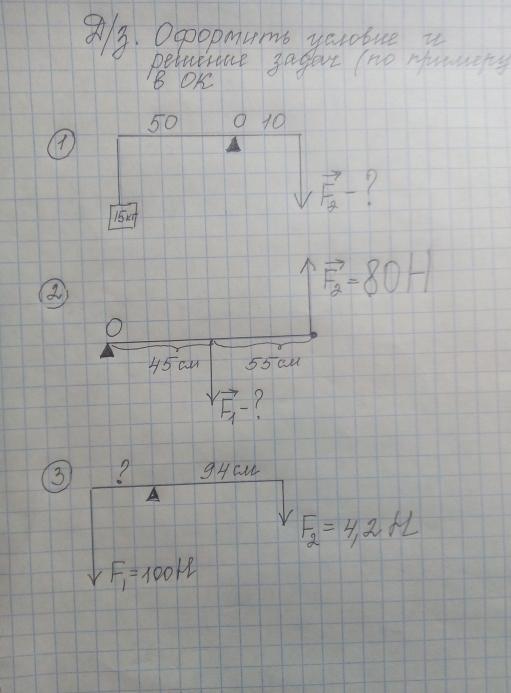 Д/з. Оформить условие и
решение задач (по примеру
в ОК
① 50 0 10
15кг
F₂ - ?
② F₂ = 80Н
0
45см 55см
F₁ - ?
③ ? 94см
F₂ = 4,2 Н
F₁ = 100Н